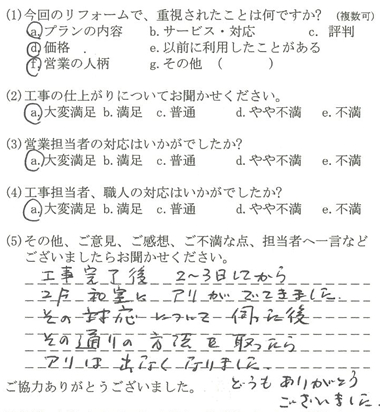 (1)今回のリフォームで、重視されたことは何ですか? (複数可)
a.プランの内容 b.サービス・対応 c. 評判
d.価格 . e.以前に利用したことがある
f.営業の人柄 g.その他 ( )
(2)工事の仕上がりについてお聞かせください。
a.大変満足 b.満足 c.普通 d.やや不満 e.不満
(3)営業担当者の対応はいかがでしたか?
a.大変満足 b.満足 c.普通 d.やや不満 e.不満
(4)工事担当者、職人の対応はいかがでしたか?
a.大変満足 b.満足 c.普通 d.やや不満 e.不満
(5)その他、ご意見、ご感想、ご不満な点、担当者へ一言など
ございましたらお聞かせください。
工事完了後 2〜3日してから
2F 和室に アリがでてきました.
その対応について 伺った後
その通りの方法を取ったら
アリは出なくなりました.
ご協力ありがとうございました。
どうもありがとう
ございました.